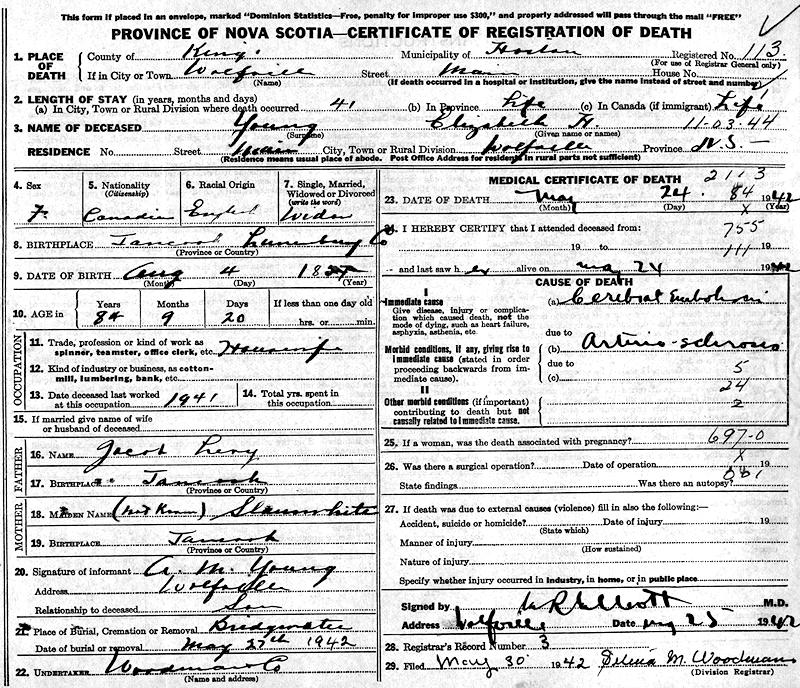 This form if placed in an envelope, marked "Dominion Statistics—Free, penalty for improper use $300," and properly addressed will pass through the mail "FREE"
PROVINCE OF NOVA SCOTIA—CERTIFICATE OF REGISTRATION OF DEATH
1. PLACE OF DEATH County of Kings Municipality of Registered No. 113
(For use of Registrar General only)
If in City or Town Wolfville Street Main House No.
(Name) (If death occurred in a hospital or institution, give the name instead of street and number)
2. LENGTH OF STAY (in years, months and days)
(a) In City, Town or Rural Division where death occurred 41 (b) In Province Life (c) In Canada (if immigrant) Life
3. NAME OF DECEASED Young Elizabeth H. 11-03-44
(Surname) (Given name or names)
RESIDENCE No. Street Main City, Town or Rural Division Wolfville Province N.S.
(Residence means usual place of abode. Post Office Address for residents in rural parts not sufficient)
4. Sex 5. Nationality (Citizenship) 6. Racial Origin 7. Single, Married, Widowed or Divorced (write the word)
F. Canadian English Widow
8. BIRTHPLACE Tancook Lunenburg Co
(Province or Country)
9. DATE OF BIRTH Aug 4
(Month) (Day) (Year)
10. AGE in Years Months Days If less than one day old
84 9 20 hrs. or min.
OCCUPATION
11. Trade, profession or kind of work as spinner, teamster, office clerk, etc. Housewife
12. Kind of industry or business, as cotton-mill, lumbering, bank, etc.
13. Date deceased last worked at this occupation 1941 14. Total yrs. spent in this occupation
15. If married give name of wife or husband of deceased
FATHER
16. NAME Jacob Levy
17. BIRTHPLACE Tancook
(Province or Country)
MOTHER
18. MAIDEN NAME (Not Known) Slaunwhite
19. BIRTHPLACE Tancook
(Province or Country)
20. Signature of informant A. M. Young
Address Wolfville
Relationship to deceased Son
21. Place of Burial, Cremation or Removal Bridgewater
Date of burial or removal May 27th 1942
22. UNDERTAKER Woodman Co
(Name and address)
MEDICAL CERTIFICATE OF DEATH 2113
23. DATE OF DEATH May 24 84 1942
(Month) (Day) (Year)
X
24. I HEREBY CERTIFY that I attended deceased from: 755
19 to 111 19
and last saw her alive on May 24 1942
CAUSE OF DEATH
I
Immediate cause (a) Cerebral Embolism
Give disease, injury or complication which caused death, not the mode of dying, such as heart failure, asphyxia, asthenia, etc.
due to
Morbid conditions, if any, giving rise to immediate cause (stated in order proceeding backwards from immediate cause). (b) Arterio-sclerosis
due to 5
(c) 24
II
Other morbid conditions (if important) contributing to death but not causally related to immediate cause. 2
25. If a woman, was the death associated with pregnancy? 697-0
26. Was there a surgical operation? Date of operation X 19
State findings Was there an autopsy? 001
27. If death was due to external causes (violence) fill in also the following:—
Accident, suicide or homicide? Date of injury 19
(State which)
Manner of injury
(How sustained)
Nature of injury
Specify whether injury occurred in industry, in home, or in public place
Signed by Elliott M.D.
Address Wolfville Date May 25 1942
28. Registrar's Record Number 3
29. Filed May 30 1942 M. Woodman
(Division Registrar)